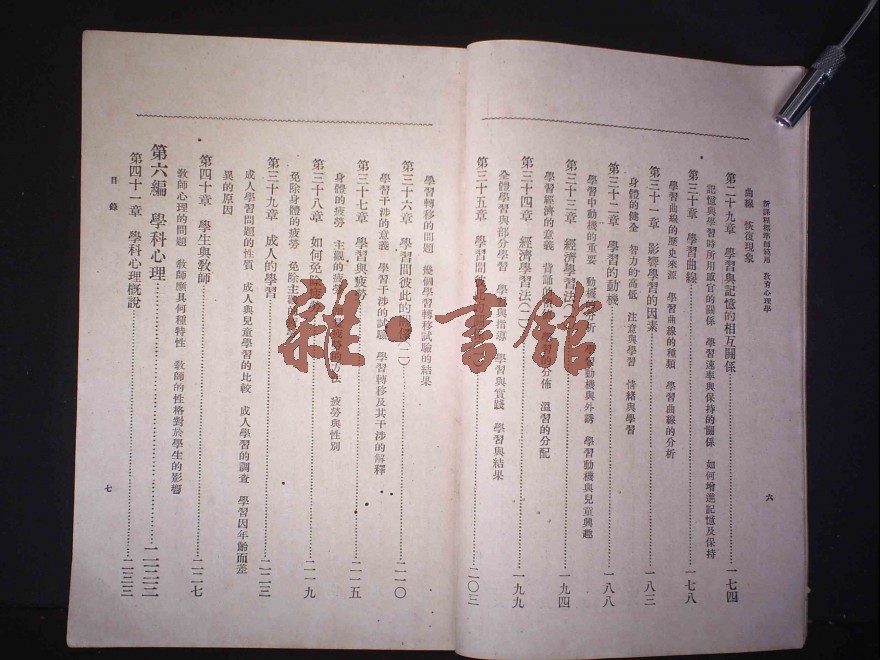 新課程標準師範適用　教育心理學
六
曲線　恢復現象
第二十九章　學習與記憶的相互關係……一七四
記憶與學習時所用感官的關係　學習速率與保持的關係　如何增進記憶及保持
第三十章　學習曲線……一七八
學習曲線的歷史來源　學習曲線的種類　學習曲線的分析
第三十一章　影響學習的因素……一八三
身體的健全　智力的高低　注意與學習　情緒與學習
第三十二章　學習的動機……一八八
學習中動機的重要　動機的分析　動機與外誘　學習動機與兒童興趣
第三十三章　經濟學習法……一九四
學習經濟的意義　背誦的　分佈　溫習的分配
第三十四章　經濟學習法(二)……一九九
全體學習與部分學習　學習與指導　學習與實踐　學習與結果
第三十五章　學習間彼此的……二〇三
學習轉移的問題　幾個學習轉移試驗的結果
第三十六章　學習間彼此的關係(二)……二一〇
學習干涉的意義　學習干涉的試驗　學習轉移及其干涉的解釋
第三十七章　學習與疲勞……二一五
身體的疲勞　主觀的疲勞　疲勞的方法　疲勞與性別
第三十八章　如何免除疲勞……二一九
免除身體的疲勞　免除主觀的
第三十九章　成人的學習……二二三
成人學習問題的性質　成人與兒童學習的比較　成人學習的調查　學習因年齡而差
異的原因
第四十章　學生與教師……二二七
教師心理的問題　教師應具何種特性　教師的性格對於學生的影響
第六編　學科心理……二三三
第四十一章　學科心理概說……二三三
目錄
七
雜·書館